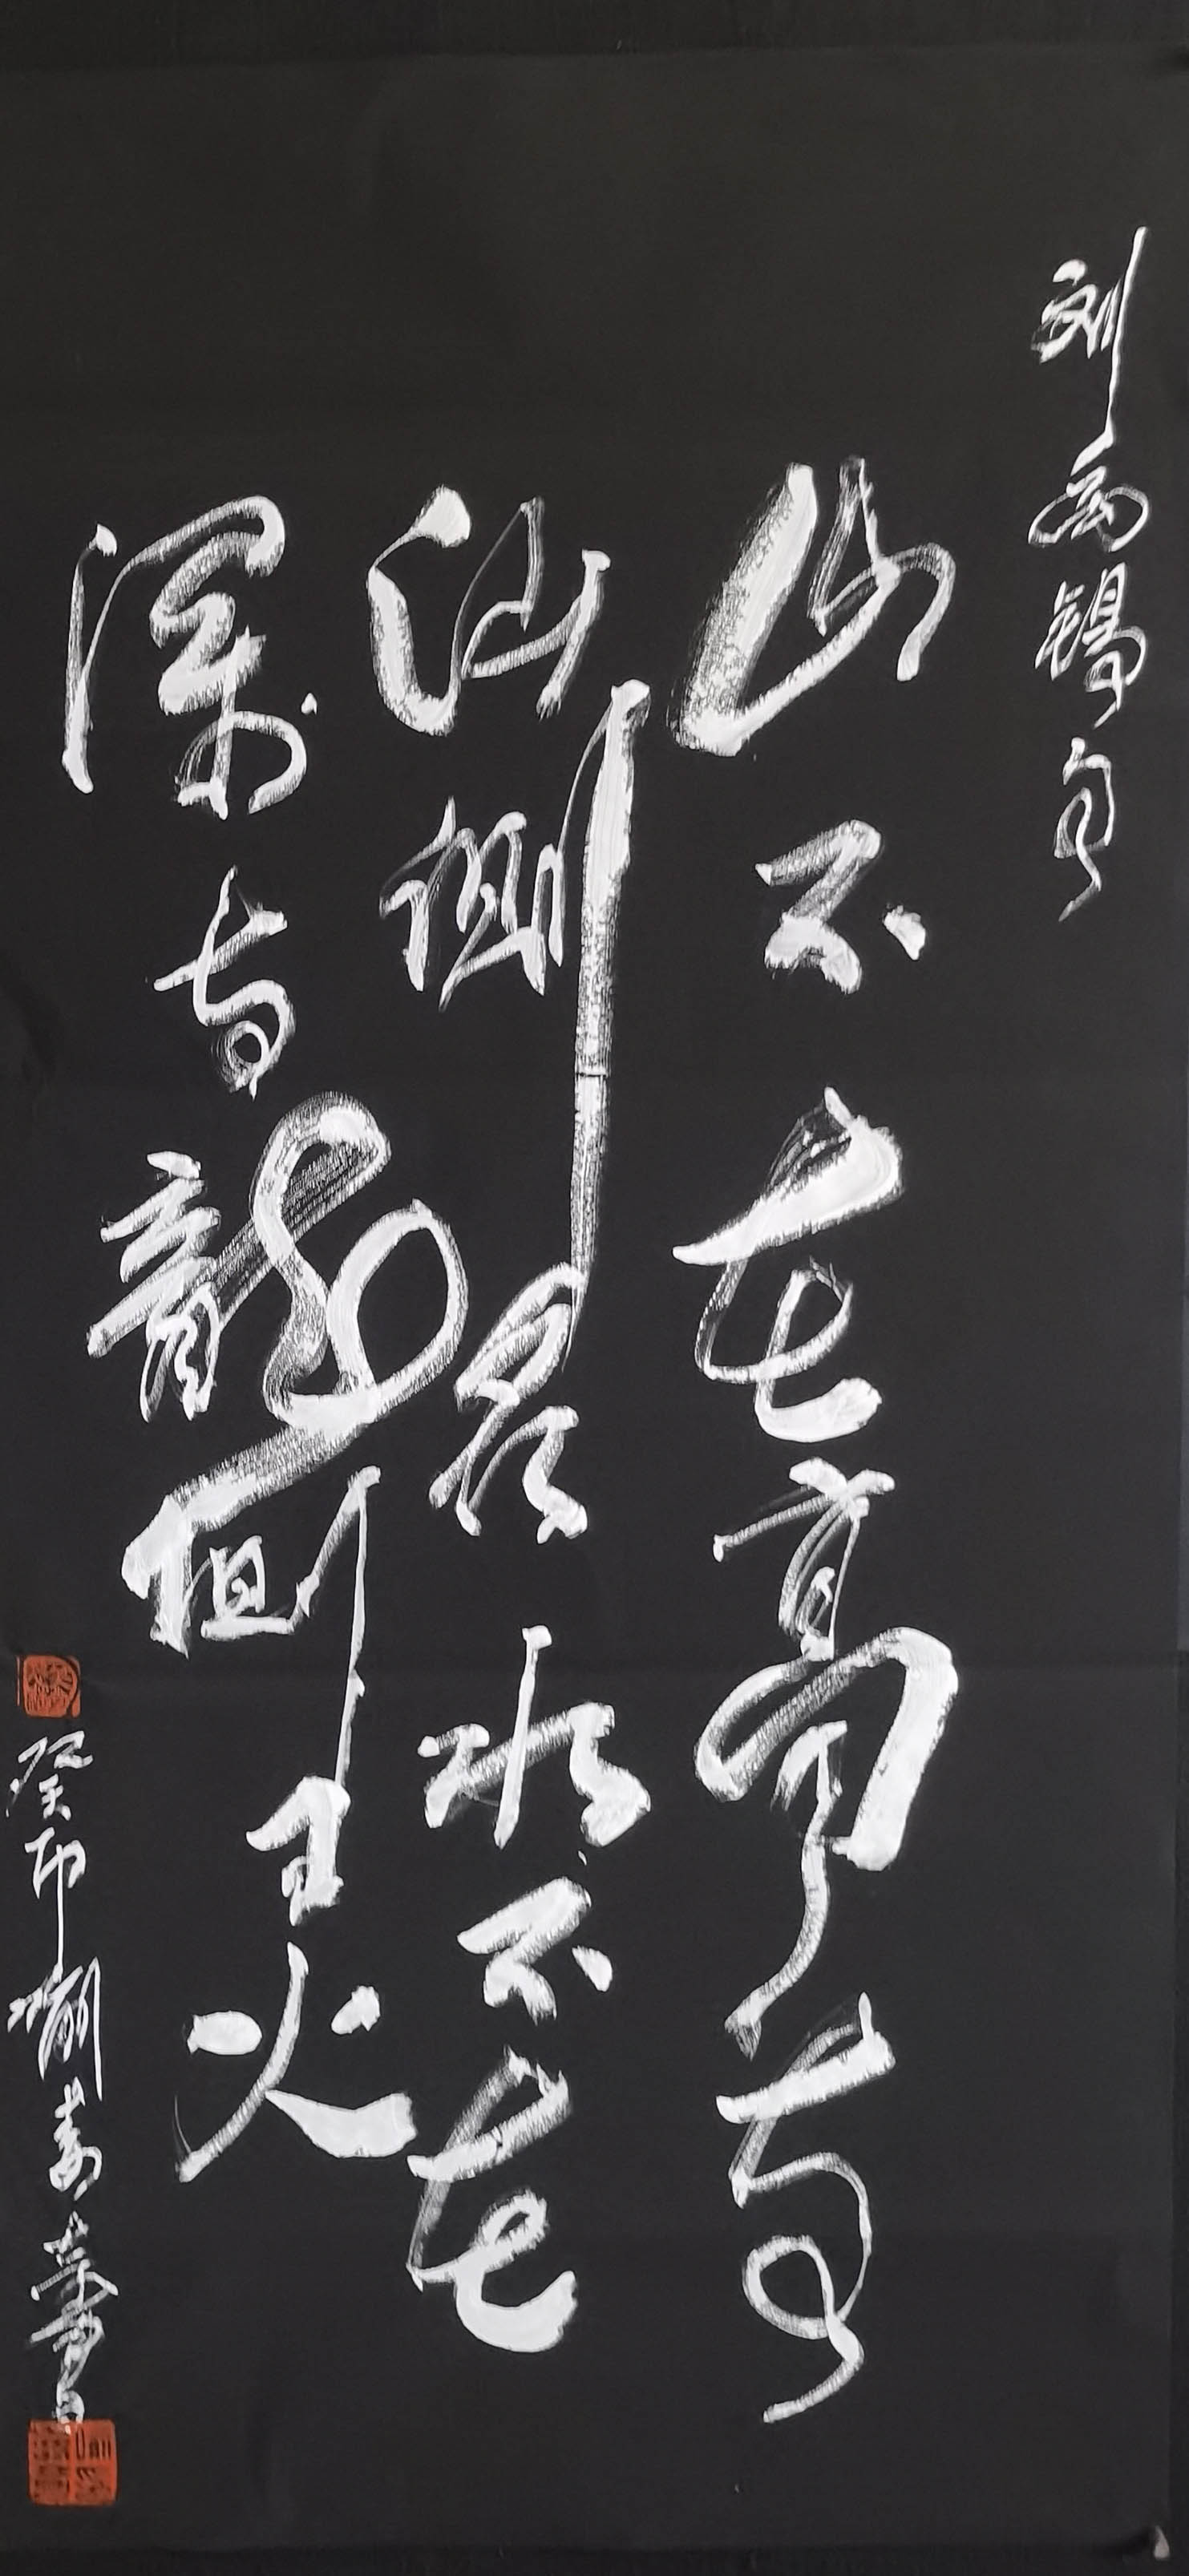 刘禹锡句
山不在高有
仙则名水不在
深有龙则灵
癸卯